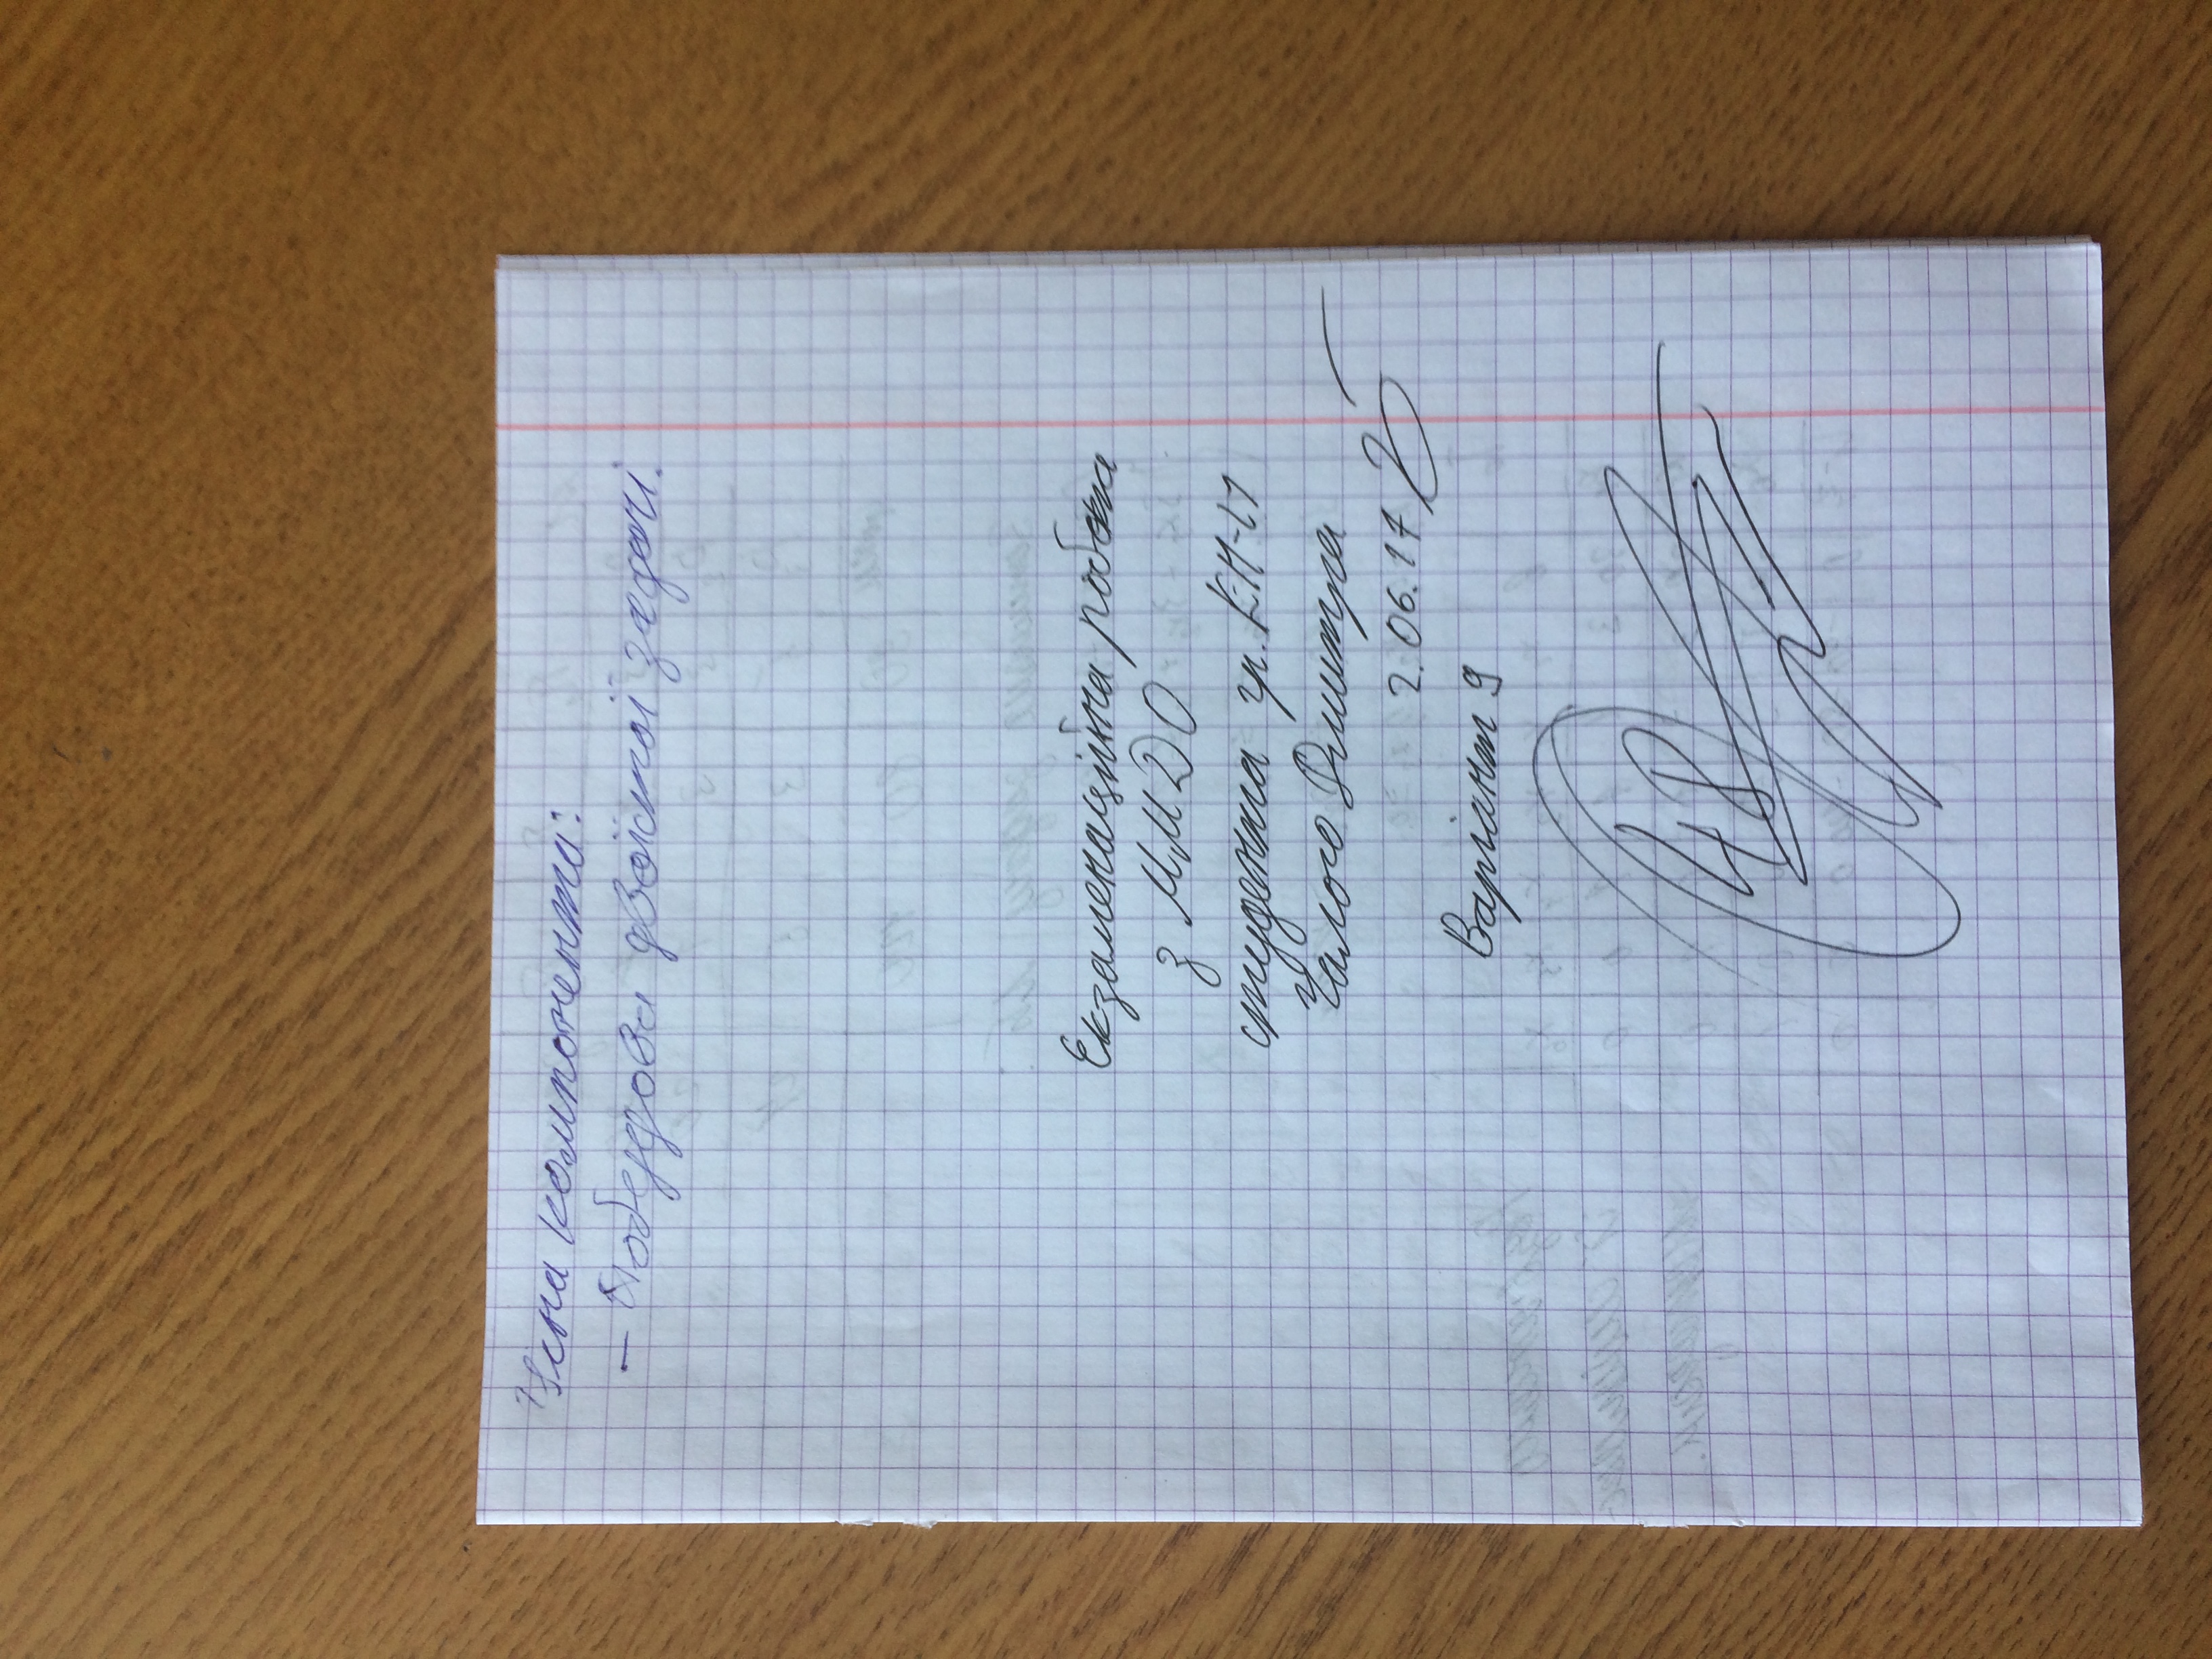 Усна компонента:
– Побудова двоїстої задачі.
Екзаменаційна робота
з ММДО
студента гр. КН-11
Чалого Дмитра
2.06.17
Варіант 9
48